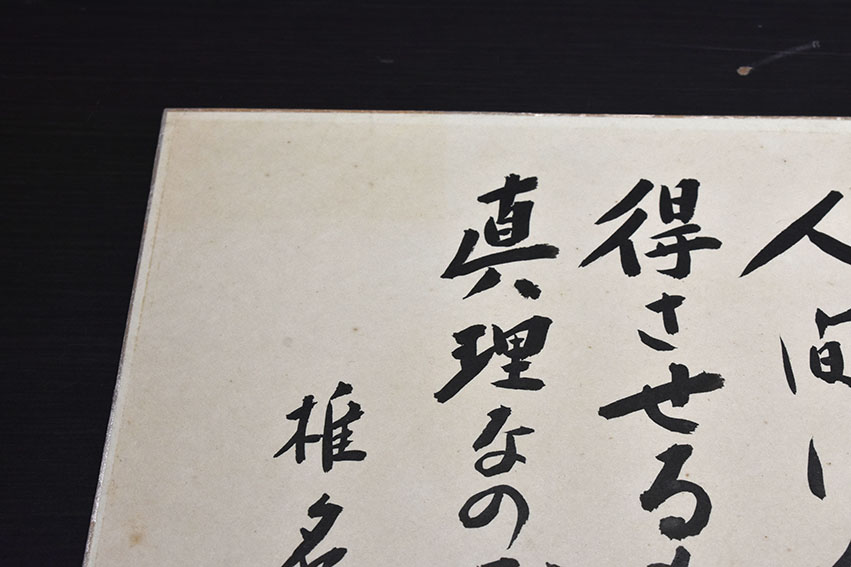 人間に
得させる
真理なの
椎名